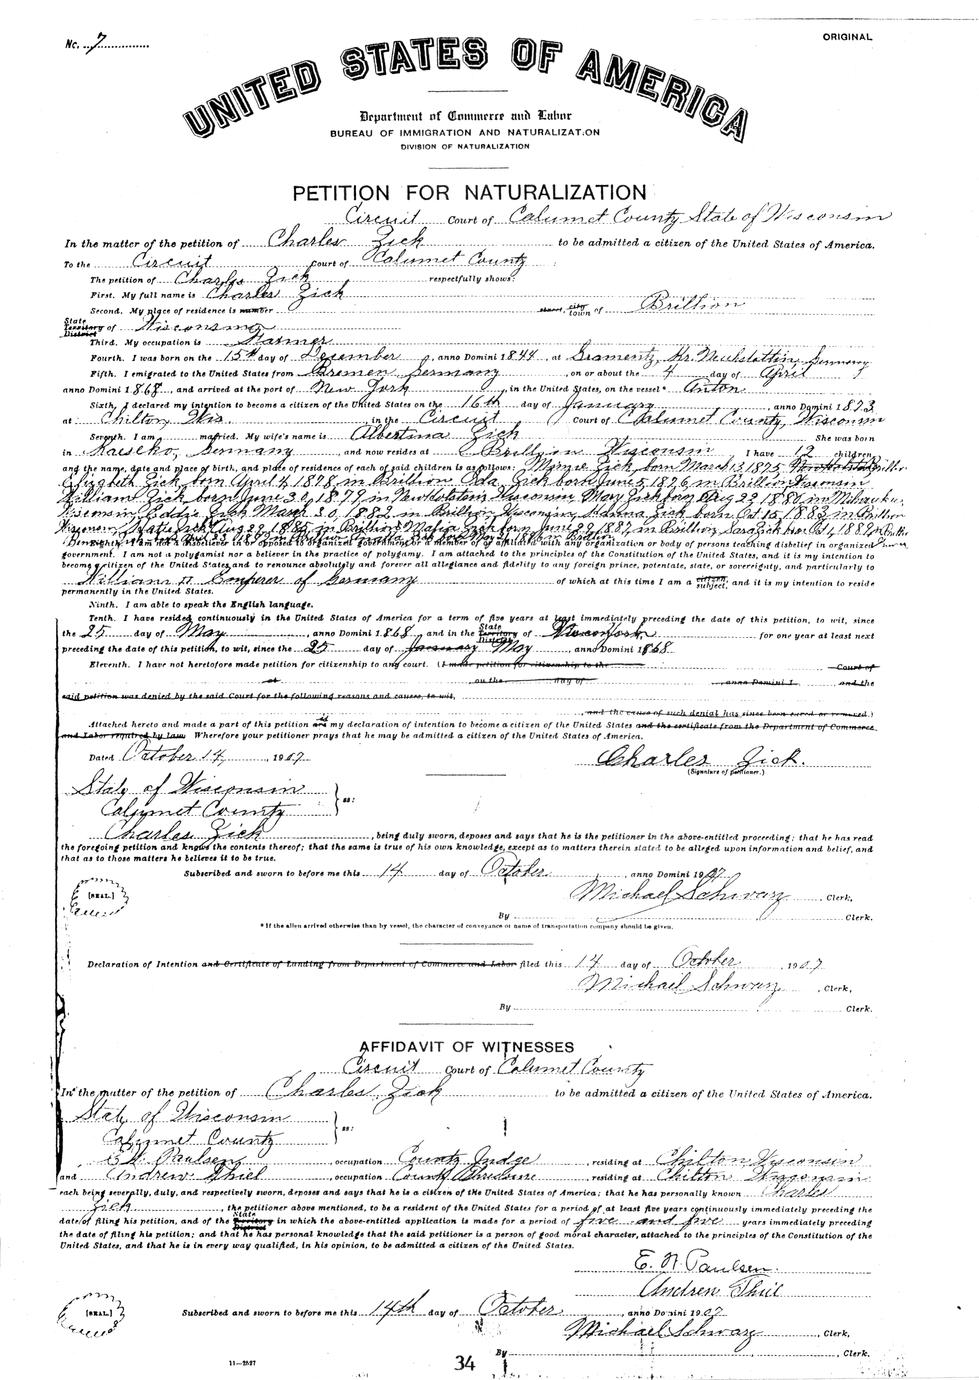 No. 7
ORIGINAL
UNITED STATES OF AMERICA
Department of Commerce and Labor
BUREAU OF IMMIGRATION AND NATURALIZATION
DIVISION OF NATURALIZATION
PETITION FOR NATURALIZATION
Circuit Court of Calumet County State of Wisconsin
In the matter of the petition of Charles Zick to be admitted a citizen of the United States of America.
To the Circuit Court of Calumet County
The petition of Charles Zick respectfully shows:
First. My full name is Charles Zick
Second. My place of residence is number street, city town of Brillion
State Territory District of Wisconsin
Third. My occupation is Farmer
Fourth. I was born on the 15th day of December, anno Domini 1844, at Germany
Fifth. I emigrated to the United States from Bremen Germany, on or about the 4 day of April
anno Domini 1868, and arrived at the port of New York, in the United States, on the vessel* Anton
Sixth. I declared my intention to become a citizen of the United States on the 16th day of January, anno Domini 1873
at Chilton Wis. in the Circuit Court of Calumet County, Wisconsin
Seventh. I am married. My wife's name is Albertina Zick She was born
in Germany and now resides at Brillion Wisconsin I have 12 children,
and the name, date and place of birth, and place of residence of each of said children is as follows: Minnie Zick, born March 13 1875
Elizabeth Zick, born April 4, 1878 in Brillion Ida Zick born June 5, 1876 in Brillion Wisconsin
William Zick, born June 30, 1879 in New Holstein Wisconsin Mary Zick born Aug 23 1880 in
Wisconsin Eddie Zick March 30, 1882 in Brillion Wisconsin, Hanna Zick, born Oct 15, 1883 in Brillion
Wisconsin Zick Aug 29, 1885 in Brillion Zick born June 29, 1887, in Brillion, Sara Zick
Eighth. I am not a disbeliever in or opposed to organized government or a member of or affiliated with any organization or body of persons teaching disbelief in organized
government. I am not a polygamist nor a believer in the practice of polygamy. I am attached to the principles of the Constitution of the United States, and it is my intention to
become a citizen of the United States and to renounce absolutely and forever all allegiance and fidelity to any foreign prince, potentate, state, or sovereignty, and particularly to
William II Emperer of Germany of which at this time I am a citizen subject, and it is my intention to reside
permanently in the United States.
Ninth. I am able to speak the English language.
Tenth. I have resided continuously in the United States of America for a term of five years at least immediately preceding the date of this petition, to wit, since
the 25 day of May, anno Domini 1868, and in the State Territory District of Wisconsin for one year at least next
preceding the date of this petition, to wit, since the 25 day of January May, anno Domini 1868.
Eleventh. I have not heretofore made petition for citizenship to any court. (I made petition for citizenship to the Court of
at on the day of anno Domini 1 and the
said petition was denied by the said Court for the following reasons and causes, to wit,
and the cause of such denial has since been cured or removed.)
Attached hereto and made a part of this petition are is my declaration of intention to become a citizen of the United States and the certificate from the Department of Commerce
and Labor required by law. Wherefore your petitioner prays that he may be admitted a citizen of the United States of America.
Dated October 14, 1907
Charles Zick.
(Signature of petitioner.)
State of Wisconsin
Calumet County ss:
Charles Zick, being duly sworn, deposes and says that he is the petitioner in the above-entitled proceeding; that he has read
the foregoing petition and knows the contents thereof; that the same is true of his own knowledge, except as to matters therein stated to be alleged upon information and belief, and
that as to those matters he believes it to be true.
Subscribed and sworn to before me this 14 day of October, anno Domini 1907
[SEAL.]
Michael Schwarz, Clerk.
By Clerk.
*If the alien arrived otherwise than by vessel, the character of conveyance or name of transportation company should be given.
Declaration of Intention and Certificate of Landing from Department of Commerce and Labor filed this 14 day of October, 1907
Michael Schwarz, Clerk.
By Clerk.
AFFIDAVIT OF WITNESSES
Circuit Court of Calumet County
In the matter of the petition of Charles Zick to be admitted a citizen of the United States of America.
State of Wisconsin
Calumet County ss:
E. N. Paulsen, occupation County Judge, residing at Chilton Wisconsin
and Andrew Thiel, occupation County, residing at Chilton Wisconsin
each being severally, duly, and respectively sworn, deposes and says that he is a citizen of the United States of America; that he has personally known Charles
Zick, the petitioner above mentioned, to be a resident of the United States for a period of at least five years continuously immediately preceding the
date of filing his petition, and of the State Territory District in which the above-entitled application is made for a period of five and five years immediately preceding
the date of filing his petition; and that he has personal knowledge that the said petitioner is a person of good moral character, attached to the principles of the Constitution of the
United States, and that he is in every way qualified, in his opinion, to be admitted a citizen of the United States.
E. N. Paulsen.
Andrew Thiel
[SEAL.]
Subscribed and sworn to before me this 14th day of October, anno Domini 1907
Michael Schwarz, Clerk.
By Clerk.
11—2527
34